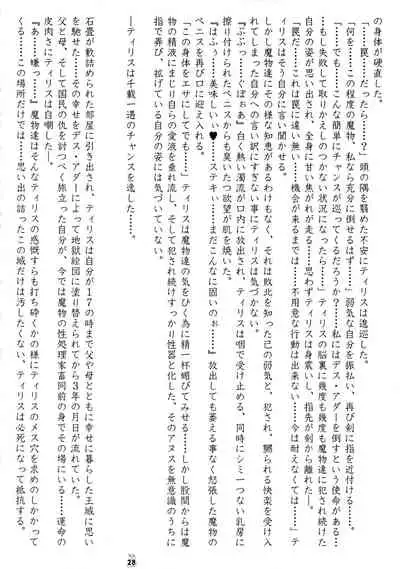 の身体が硬直した。
「罠……罠だったら……？」頭の隅を翳めた不安にティリスは逡巡した。
「何を……この程度の魔物、私なら充分に倒せるはず……」弱気な自分を振払い、再び剣に指を近付ける……。
「……でも……こんな簡単にチャンスが巡ってくるだろうか？……私にはデス・アダーを倒すという使命がある……
もしも失敗して取りかえしのつかない状況になったら……」ティリスの脳裏に幾度も幾度も魔物達に犯され続けた
自分の姿が思い出され、全身に甘い焦れが走る……思わずティリスは身震いし、指先が剣から離れた……。
「罠だ……これは罠に違い無い……機会が来るまでは……不用意な行動は出来ない……今は耐えなくては……」テ
ィリスはそう自分に言い聞かせる。
しかし魔物達にその様な知恵があるわけもなく、それは敗北を知った己の弱気と、犯され、嬲られる快楽を受け入
れてしまった自分への言い訳にすぎない事にティリスは気づかない。
『ぶぶっ……ぐぽぉあ』白く熱い濁流が口内に放出され、ティリスは咽で受け止める、同時にシミ一つない乳房に
擦り付けられたペニスからも臭いたつ欲望が肌を焼いた。
『はふぅ……美味しいぃ♥……ステキぃ……まだこんなに固いのぉ……』放出しても萎える事なく怒張した魔物の
ペニスを再び口に迎え入れる。
「この身体をエサにしてでも……」ティリスは魔物達の気をひく為に精一杯媚びてみせる……しかし股間からは魔
物の精液にまじり自らの愛液を垂れ流し、そして犯され続けすっかり性器と化した、そのアヌスを無意識のうちに
指で弄び、拡げている自分の姿には気づいていない。
――ティリスは千載一遇のチャンスを逸した……。
石畳が敷詰められた部屋に引き出され、ティリスは自分が１７の時まで父や母とともに幸せに暮らした王城に思い
を馳せた……その幸せをデス・アダーによって地獄絵図に塗り替えられてから３年の月日が流れていた。
父と母、そして国民の仇を討つべく旅立った自分が、今では魔物の性処理家畜同前の身でその場にいる……運命の
皮肉さにティリスは自嘲した……。
「あ……嫌っ……」魔物達はそんなティリスの感慨すらも打ち砕くかの様にティリスのメス穴を求めのしかかって
くる……この場所だけでは……思い出の詰ったこの城だけは汚したくない、ティリスは必死になって抵抗する。
28